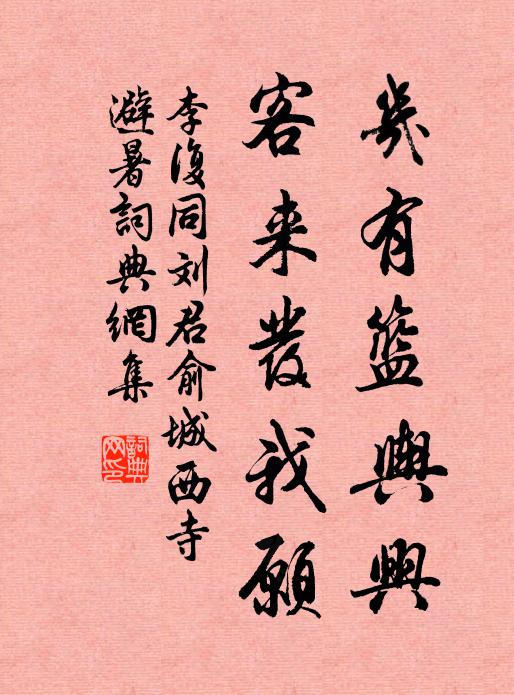 幾有籃輿興
客来發我願
李復同刘君俞城西寺
避暑詞典網集
詞典网印